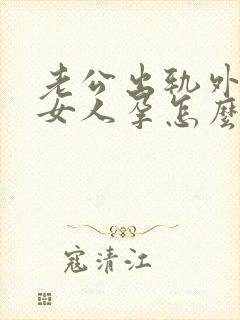 老公出轨外
女人孕怎麽
寇清江